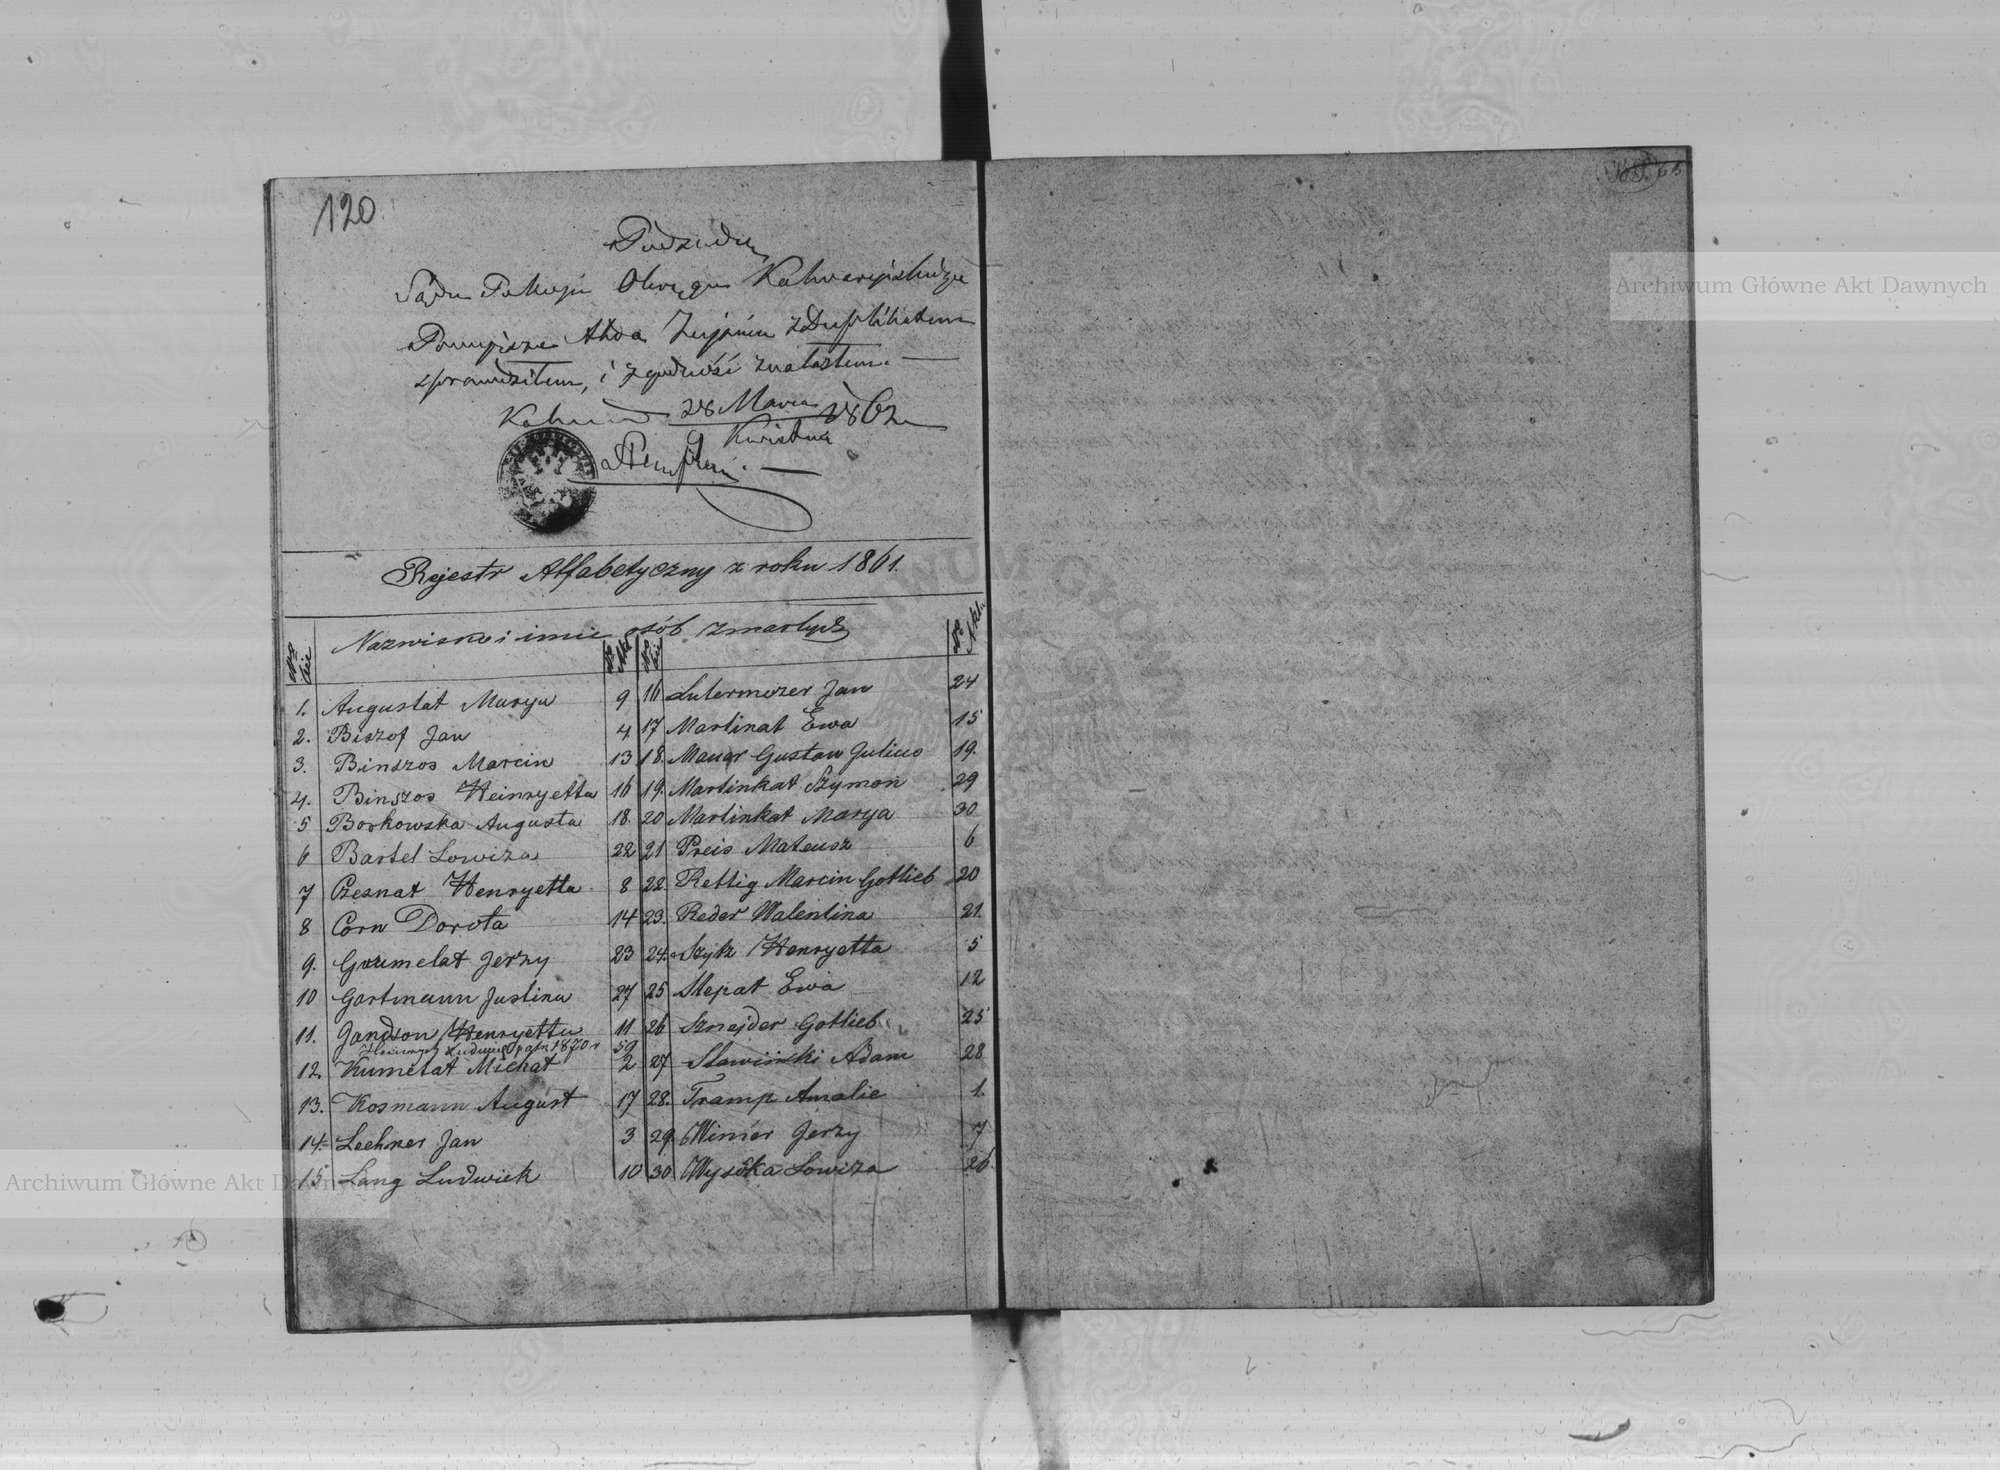 120.
Podsędek
Sądu Pokoju Okręgu Kalwaryjskiego
Powyższe Akta Zejścia z Duplikatem
sprawdziłem, i zgodność znalazłem. —
28 Marca 1862
Kwietnia
Rejestr Alfabetyczny z roku 1861.
Nazwisko i imie osób zmarłych
1. Augustat Marya 9
2. Biszof Jan 4
3. Binszos Marcin 13
4. Binszos Heinryetta 16
5 Borkowska Augusta 18.
6 Bartel Lowiza 22
7 Czesnat Henryetta 8
8 Corn Dorota 14
9. Grumelat Jerzy 23
10 Gartmann Justina 27
11. Jandson Henryetta 11
1870 r 59
12. Kumetat Michał 2
13. Kosmann August 17
14. Lechner Jan 3
15 Lang Ludwick 10
16 Lutermozer Jan 24
17 Martinat Ewa 15
18. Mauer Gustaw Julius 19.
19. Martinkat Szymon 29
20 Martinkat Marya 30
21 Preis Mateusz 6
22. Rettig Marcin Gotlieb 20
23. Reder Walentina 21.
24. Szytz Henryetta 5
25 Stepat Ewa 12
26 Sznejder Gotlieb 25
27 Sławiński Adam 28
28. Tramp Amalie 1.
29. Wimer Jerzy 7
30 Wysocka Lowiza 26.
65
Archiwum Główne Akt Dawnych
Archiwum Główne Akt Dawnych